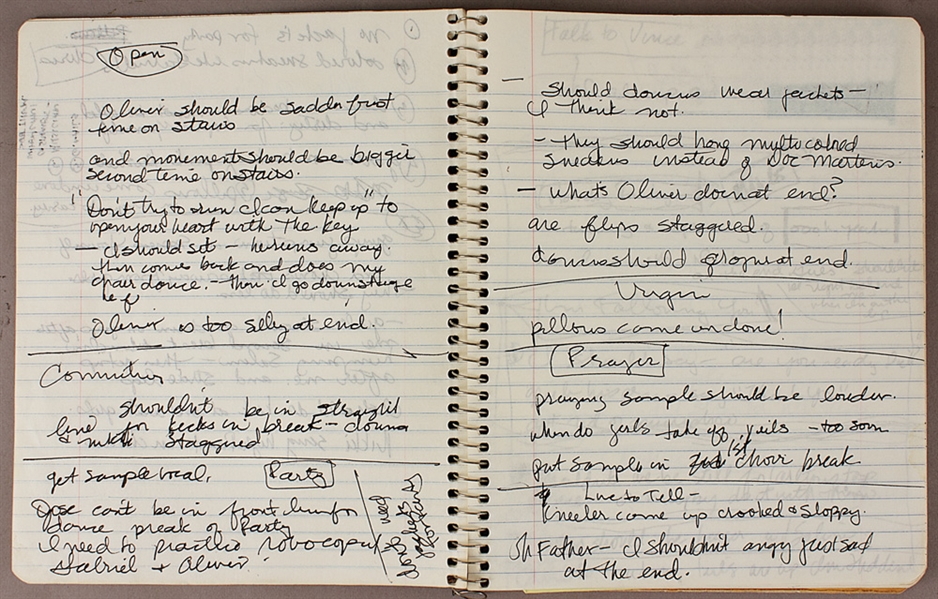 Open
Oliver should be sadder first
time on stairs
and movement should be bigger
second time on stairs.
"Don't try to run I can keep up" to
open your heart with the key
— I should sit — he runs away.
then comes back and does my
chair dance. — then I go downstage
Oliver is too silly at end.
shouldn't be in straight
line for kicks in break — donna
+ nikki staggered
get sample local.
Party
Jose can't be in front line for
dance break of Party
I need to practice robocop w/
Gabriel + Oliver
need
for party
— should dancers wear jackets —
I think not.
— they should hang multicolored
sneakers instead of Doc Martens.
— what's Oliver doin at end?
are flips staggered.
dancers should grope at end.
Virgin
pillows come undone!
Prayer
praying sample should be louder.
when do girls take off veils — too soon
put sample in 1st choir break
Live to Tell —
Kneeler came up crooked & sloppy.
Oh Father — I shouldn't angry just sad
at the end.
Talk to Vince